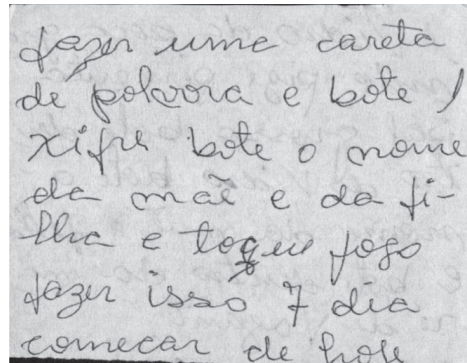 fazer uma careta
de polvora e bote
xifre bote o nome
da mãe e da fi-
lha e toque fogo
fazer isso 7 dia
começar de hoje